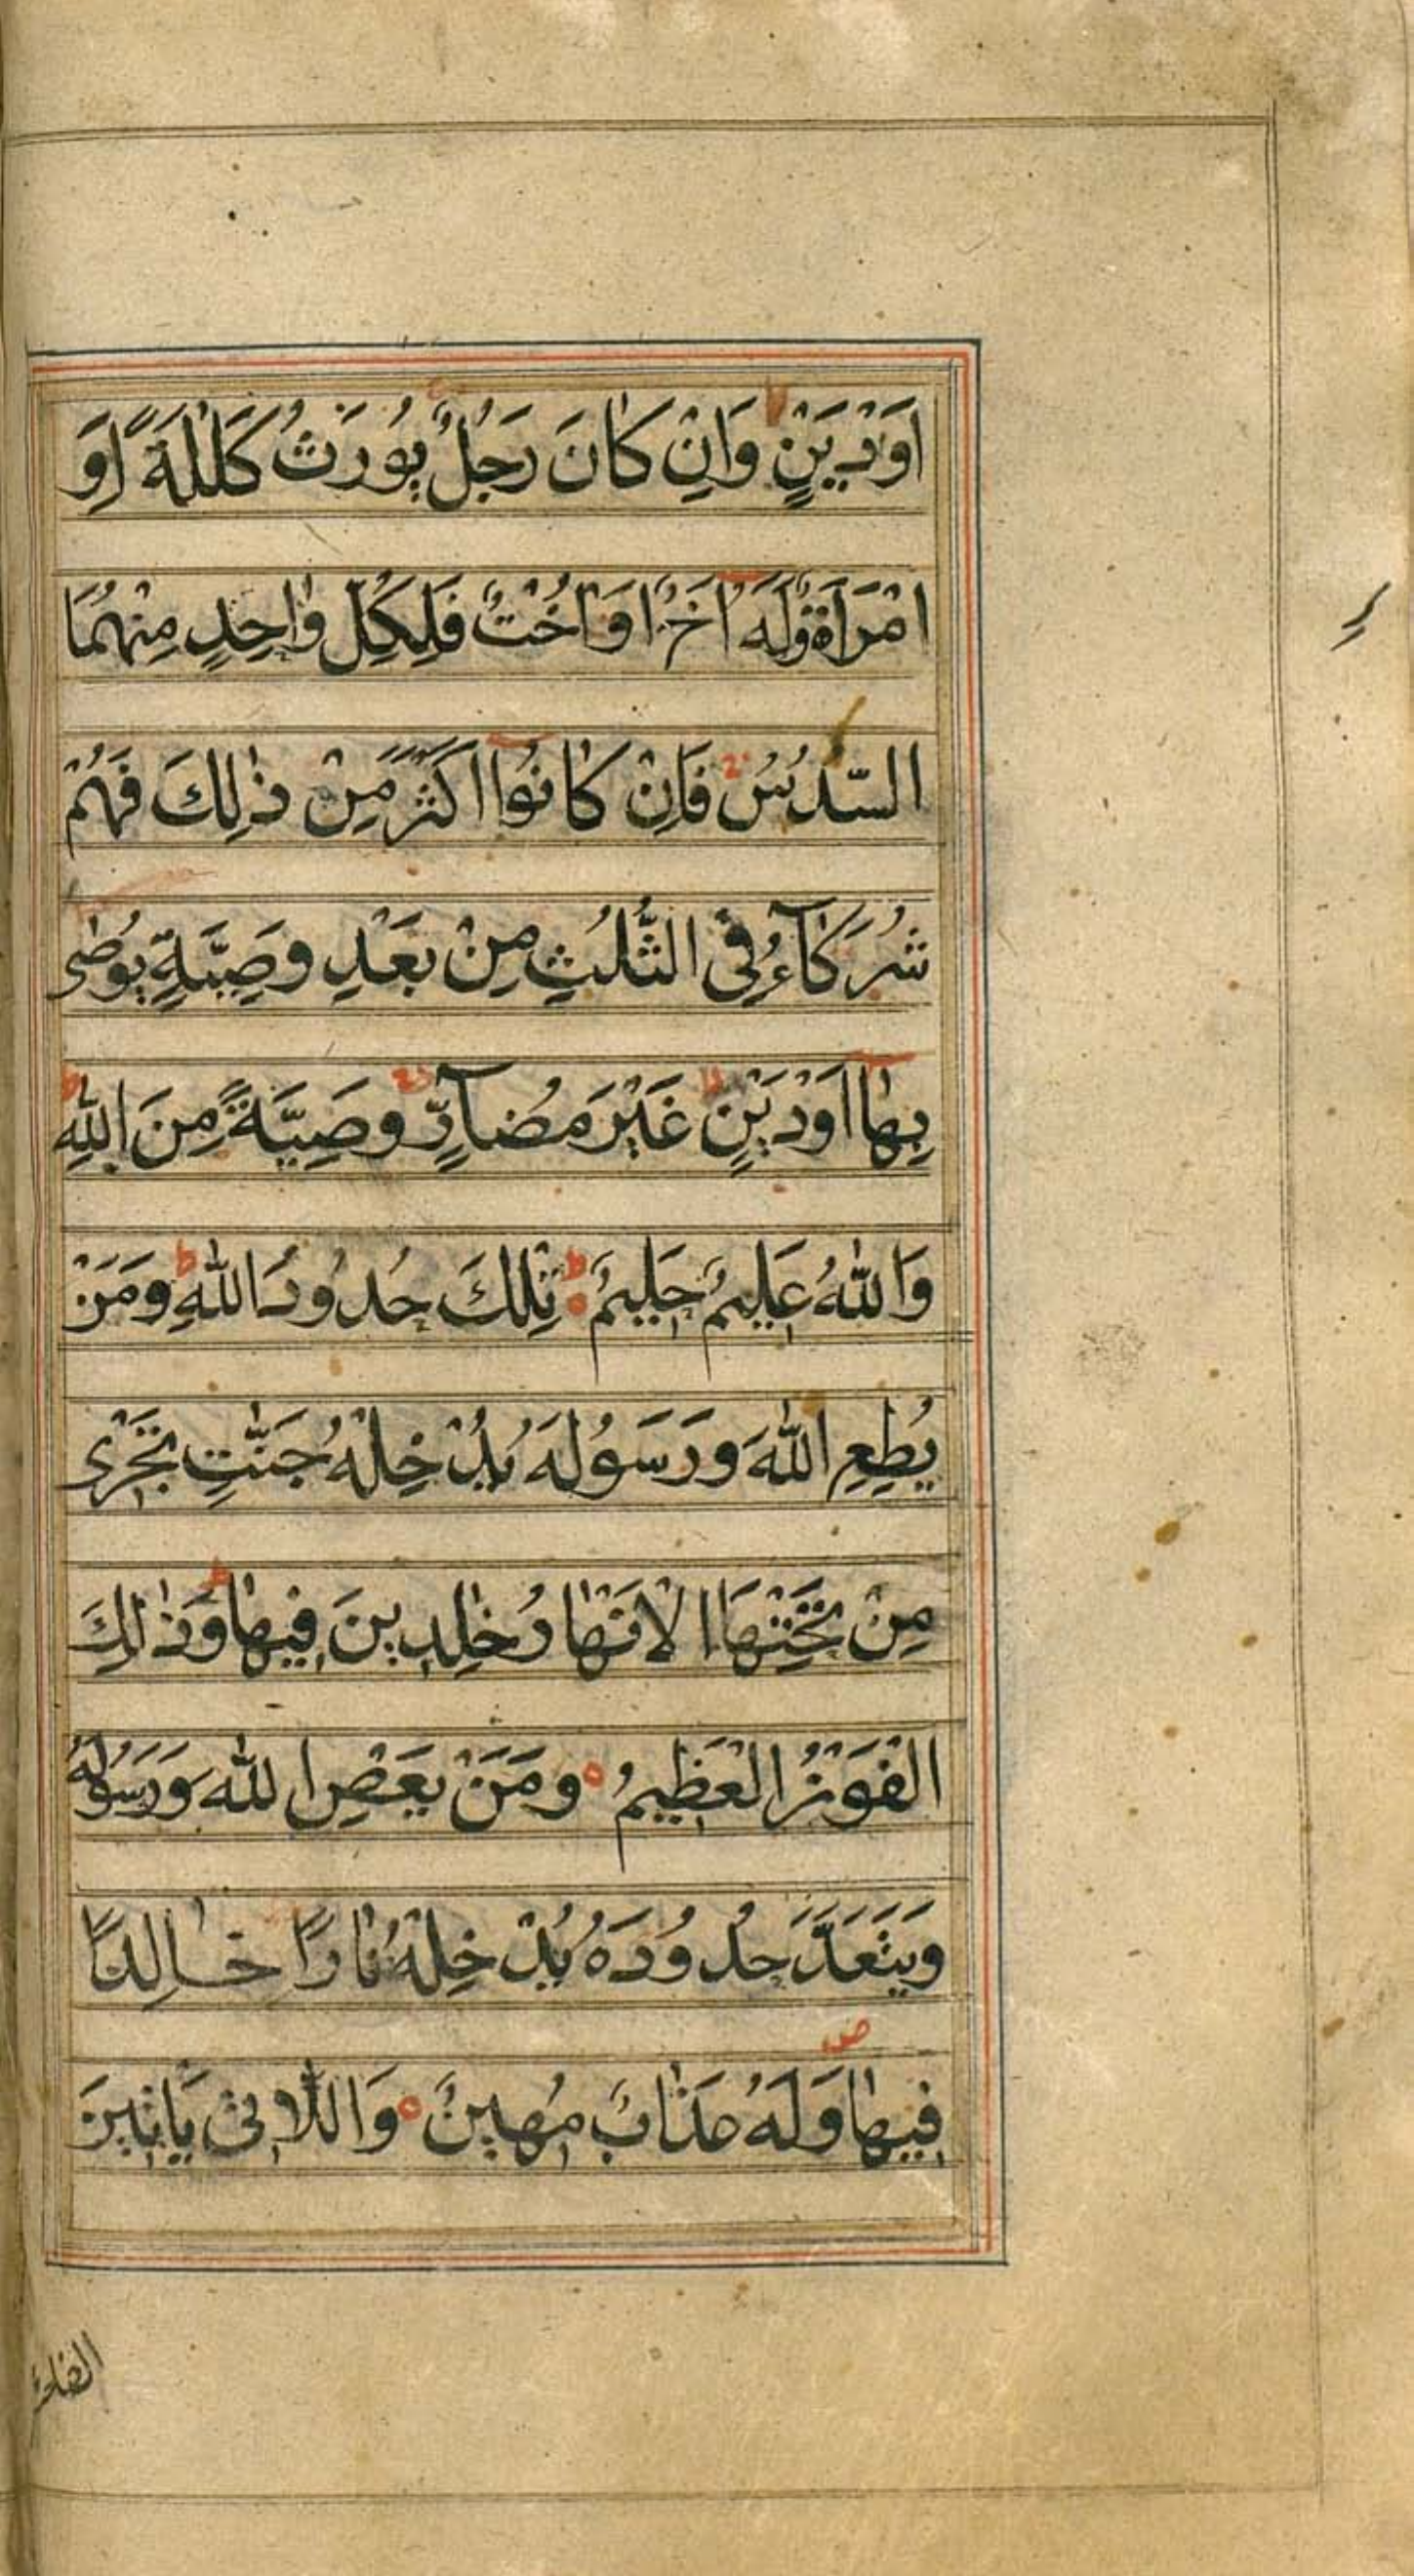 اَوْدَيْنٍ وَاِنْ كَانَ رَجُلٌ يُوْرَثُ كَلٰلَةً اَوِ
امْرَاَةٌ وَّلَهٗ اَخٌ اَوْ اُخْتٌ فَلِكُلِّ وٰاحِدٍ مِنْهُمَا
السُّدُسُ فَاِنْ كَانُوْا اَكْثَرَ مِنْ ذٰلِكَ فَهُمْ
شُرَكَآءُ فِى الثُّلُثِ مِنْ بَعْدِ وَصِيَّةٍ يُوْصٰى
بِهَا اَوْدَيْنٍ غَيْرَ مُضَآرٍّ وَصِيَّةً مِنَ اللّٰهِ ط
وَاللّٰهُ عَلِيْمٌ حَلِيْمٌ ط تِلْكَ حُدُوْدُ اللّٰهِ ط وَمَنْ
يُطِعِ اللّٰهَ وَرَسُوْلَهُ يُدْخِلْهُ جَنّٰتٍ تَجْرِى
مِنْ تَحْتِهَا الْاَنْهَارُ خٰلِدِيْنَ فِيهَا ط وَذٰلِكَ
الْفَوْزُ الْعَظِيْمُ وَمَنْ يَعْصِ اللّٰهَ وَرَسُوْلَهُ
وَيَتَعَدَّ حُدُوْدَهُ يُدْخِلْهُ نَارًا خَالِدًا
فِيهَا ص وَلَهُ عَذَابٌ مُهِيْنٌ وَاللَّاتِىْ يَاْتِيْنَ